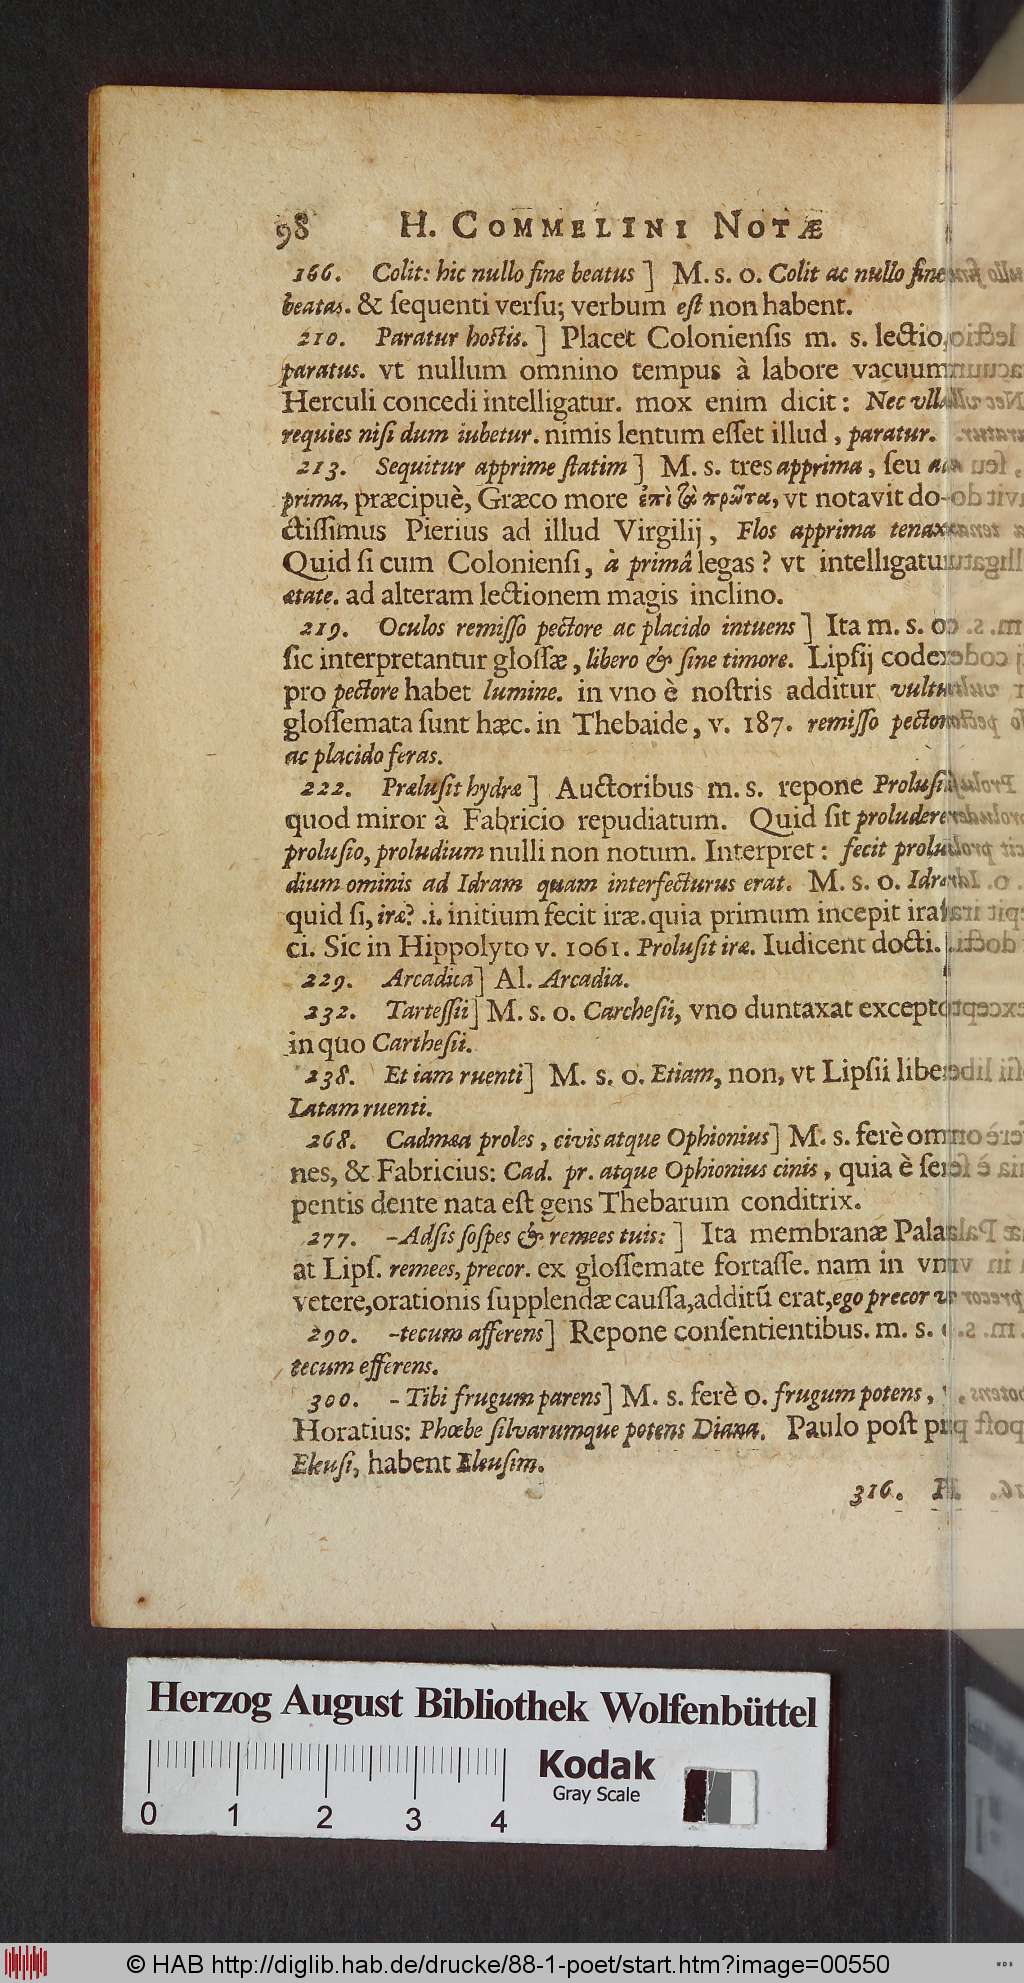 98 H. COMMELINI NOTÆ
166. Colit: hic nullo fine beatus ] M. s. o. Colit ac nullo fine
beatas. & ſequenti verſu; verbum eſt non habent.
210. Paratur hoſtis. ] Placet Colonienſis m. s. lectio,
paratus. vt nullum omnino tempus à labore vacuum
Herculi concedi intelligatur. mox enim dicit: Nec vlla
requies niſi dum iubetur. nimis lentum eſſet illud, paratur.
213. Sequitur apprime ſtatim ] M. s. tres apprima, ſeu
prima, præcipuè, Græco more ἐπὶ τὰ πρῶτα, vt notavit do-
ctiſſimus Pierius ad illud Virgilij, Flos apprima tenax
Quid ſi cum Colonienſi, à primâ legas? vt intelligatur
ætate. ad alteram lectionem magis inclino.
219. Oculos remiſſo pectore ac placido intuens ] Ita m. s. o
ſic interpretantur gloſſæ, libero & ſine timore. Lipſij codex
pro pectore habet lumine. in vno è noſtris additur vultu
gloſſemata ſunt hæc. in Thebaide, v. 187. remiſſo pectore
ac placido feras.
222. Præluſit hydræ ] Auctoribus m. s. repone Proluſit
quod miror à Fabricio repudiatum. Quid ſit proludere
proluſio, proludium nulli non notum. Interpret: fecit prolu
dium ominis ad Idram quam interfecturus erat. M. s. o.
quid ſi, iræ? .i. initium fecit iræ. quia primum incepit iraſ
ci. Sic in Hippolyto v. 1061. Proluſit iræ. Iudicent docti.
229. Arcadica] Al. Arcadia.
232. Tarteſſii] M. s. o. Carcheſii, vno duntaxat excepto
in quo Cartheſii.
238. Et iam ruenti] M. s. o. Etiam, non, vt Lipſii liber
Latam ruenti.
268. Cadmæa proles, civis atque Ophionius] M. s. ferè om
nes, & Fabricius: Cad. pr. atque Ophionius cinis, quia è ſer
pentis dente nata eſt gens Thebarum conditrix.
277. -Adſis ſoſpes & remees tuis: ] Ita membranæ Pala
at Lipſ. remees, precor. ex gloſſemate fortaſſe. nam in vno
vetere, orationis ſupplendæ cauſſa, additū erat, ego precor
290. -tecum afferens] Repone conſentientibus. m. s.
tecum efferens.
300. - Tibi frugum parens] M. s. ferè o. frugum potens,
Horatius: Phœbe ſilvarumque potens Diana. Paulo poſt pro
Eleuſi, habent Eleuſim.
316. H
Herzog August Bibliothek Wolfenbüttel
0 1 2 3 4
Kodak
Gray Scale
© HAB http://diglib.hab.de/drucke/88-1-poet/start.htm?image=00550